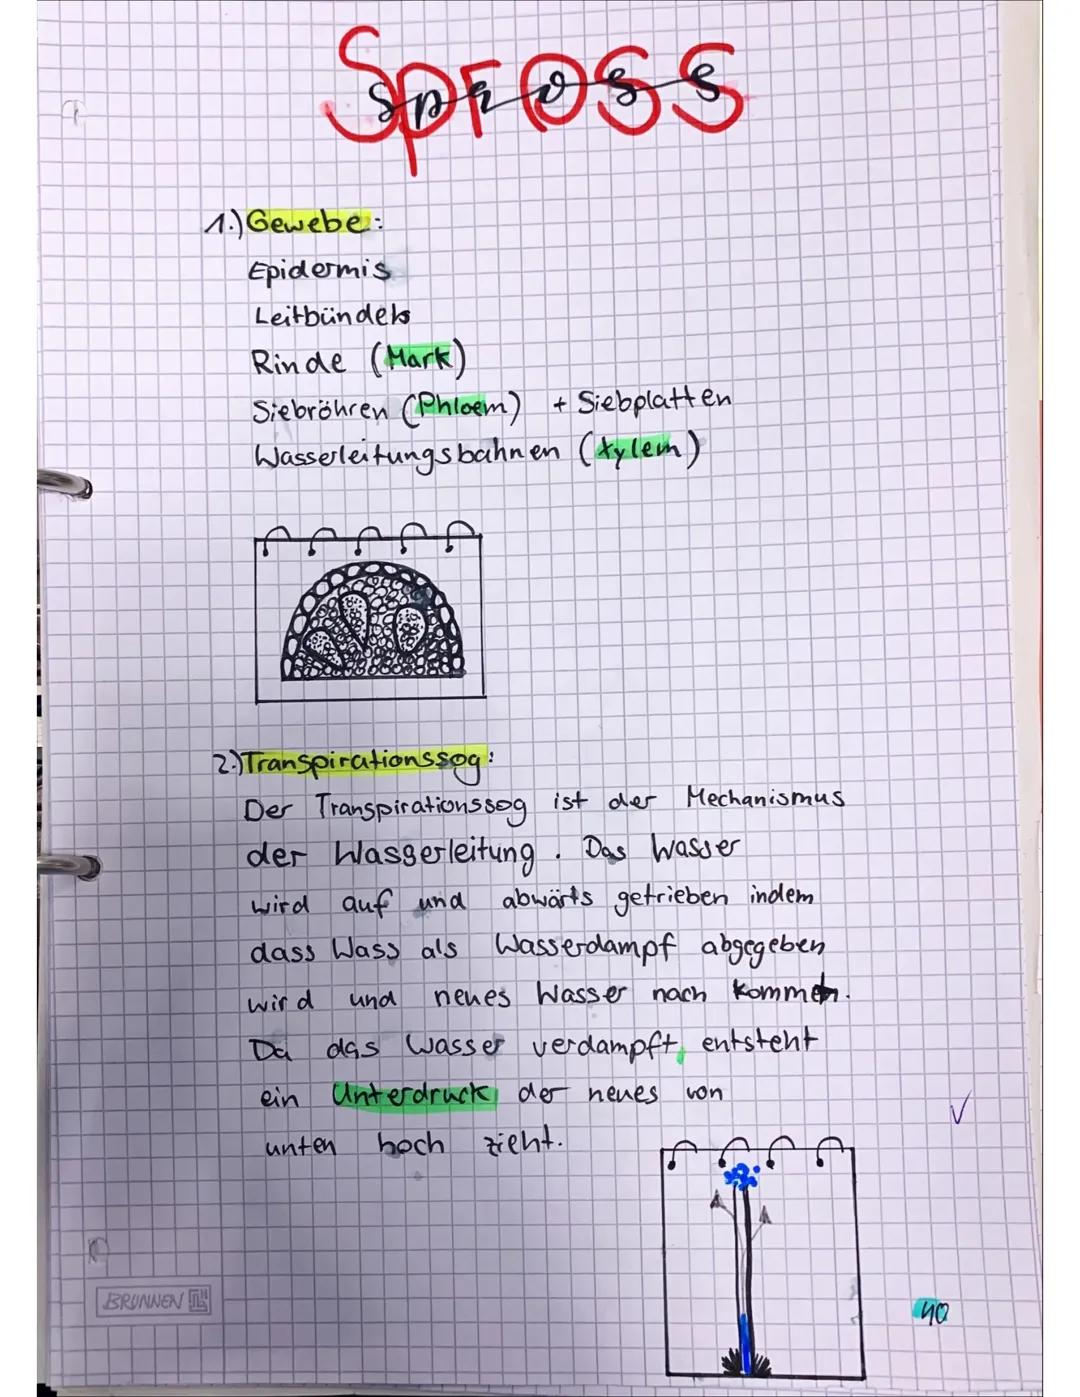 Spross
1.) Gewebe:
Epidermis
Leitbündels
Rinde (Mark)
Siebröhren (Phloem) + Siebplatten
Wasserleitungsbahnen (Xylem)
2.) Transpirationssog:
Der Transpirationssog ist der Mechanismus
der Wasserleitung. Das Wasser
wird auf und abwärts getrieben indem
dass Wass als Wasserdampf abgegeben
wird und neues Wasser nach kommen.
Da das Wasser verdampft, entsteht
ein Unterdruck, der neues von
unten hoch zieht.
BRUNNEN
40